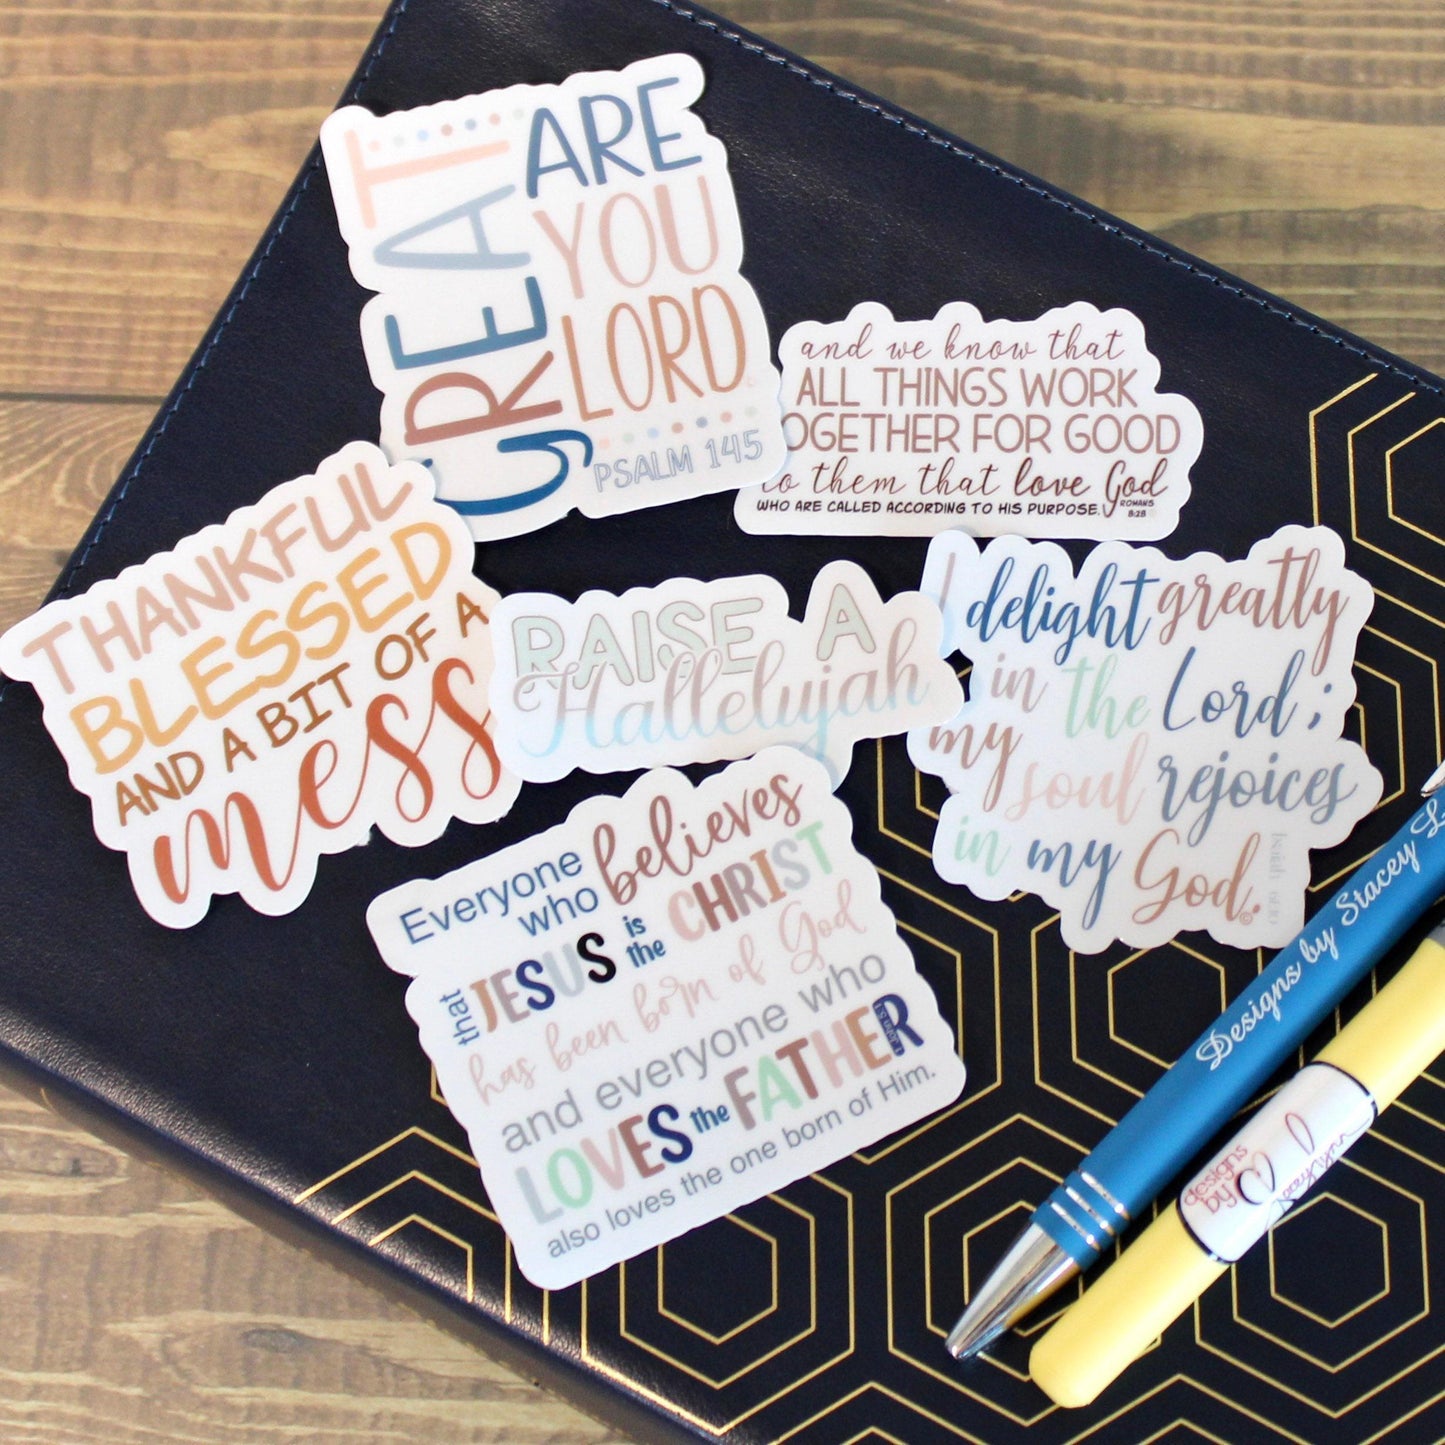 GREAT
ARE
YOU
LORD
PSALM 145
and we know that
ALL THINGS WORK
OGETHER FOR GOOD
to them that love God
WHO ARE CALLED ACCORDING TO HIS PURPOSE.
ROMANS
8:28
THANKFUL
BLESSED
AND A BIT OF A
mess
RAISE A
Hallelujah
I delight greatly
in the Lord;
my soul rejoices
in my God.
Isaiah 61:10
©
Everyone
who believes
that JESUS is the CHRIST
has been born of God
and everyone who
LOVES the FATHER
1 John 5:1
also loves the one born of Him.
Designs by Stacey L
designs
by